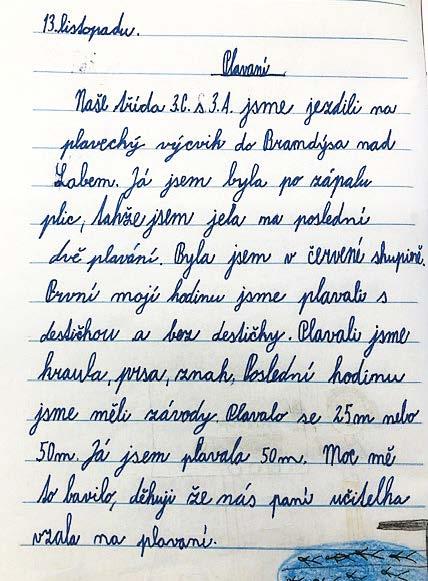 13. listopadu.
Plavaní
Naše třída 3.C. s 3.A. jsme jezdili na
plavecký výcvik do Brandýsa nad
Labem. Já jsem byla po zápalu
plic, takže jsem jela na poslední
dvě plavání. Byla jsem v červené skupině.
První mojí hodinu jsme plavali s
destičkou a bez destičky. Plavali jsme
kraula, prsa, znak, Poslední hodinu
jsme měli závody. Plavalo se 25m nebo
50m. Já jsem plavala 50m. Moc mě
to bavilo, děkuji že nás paní učitelka
vzala na plavaní.